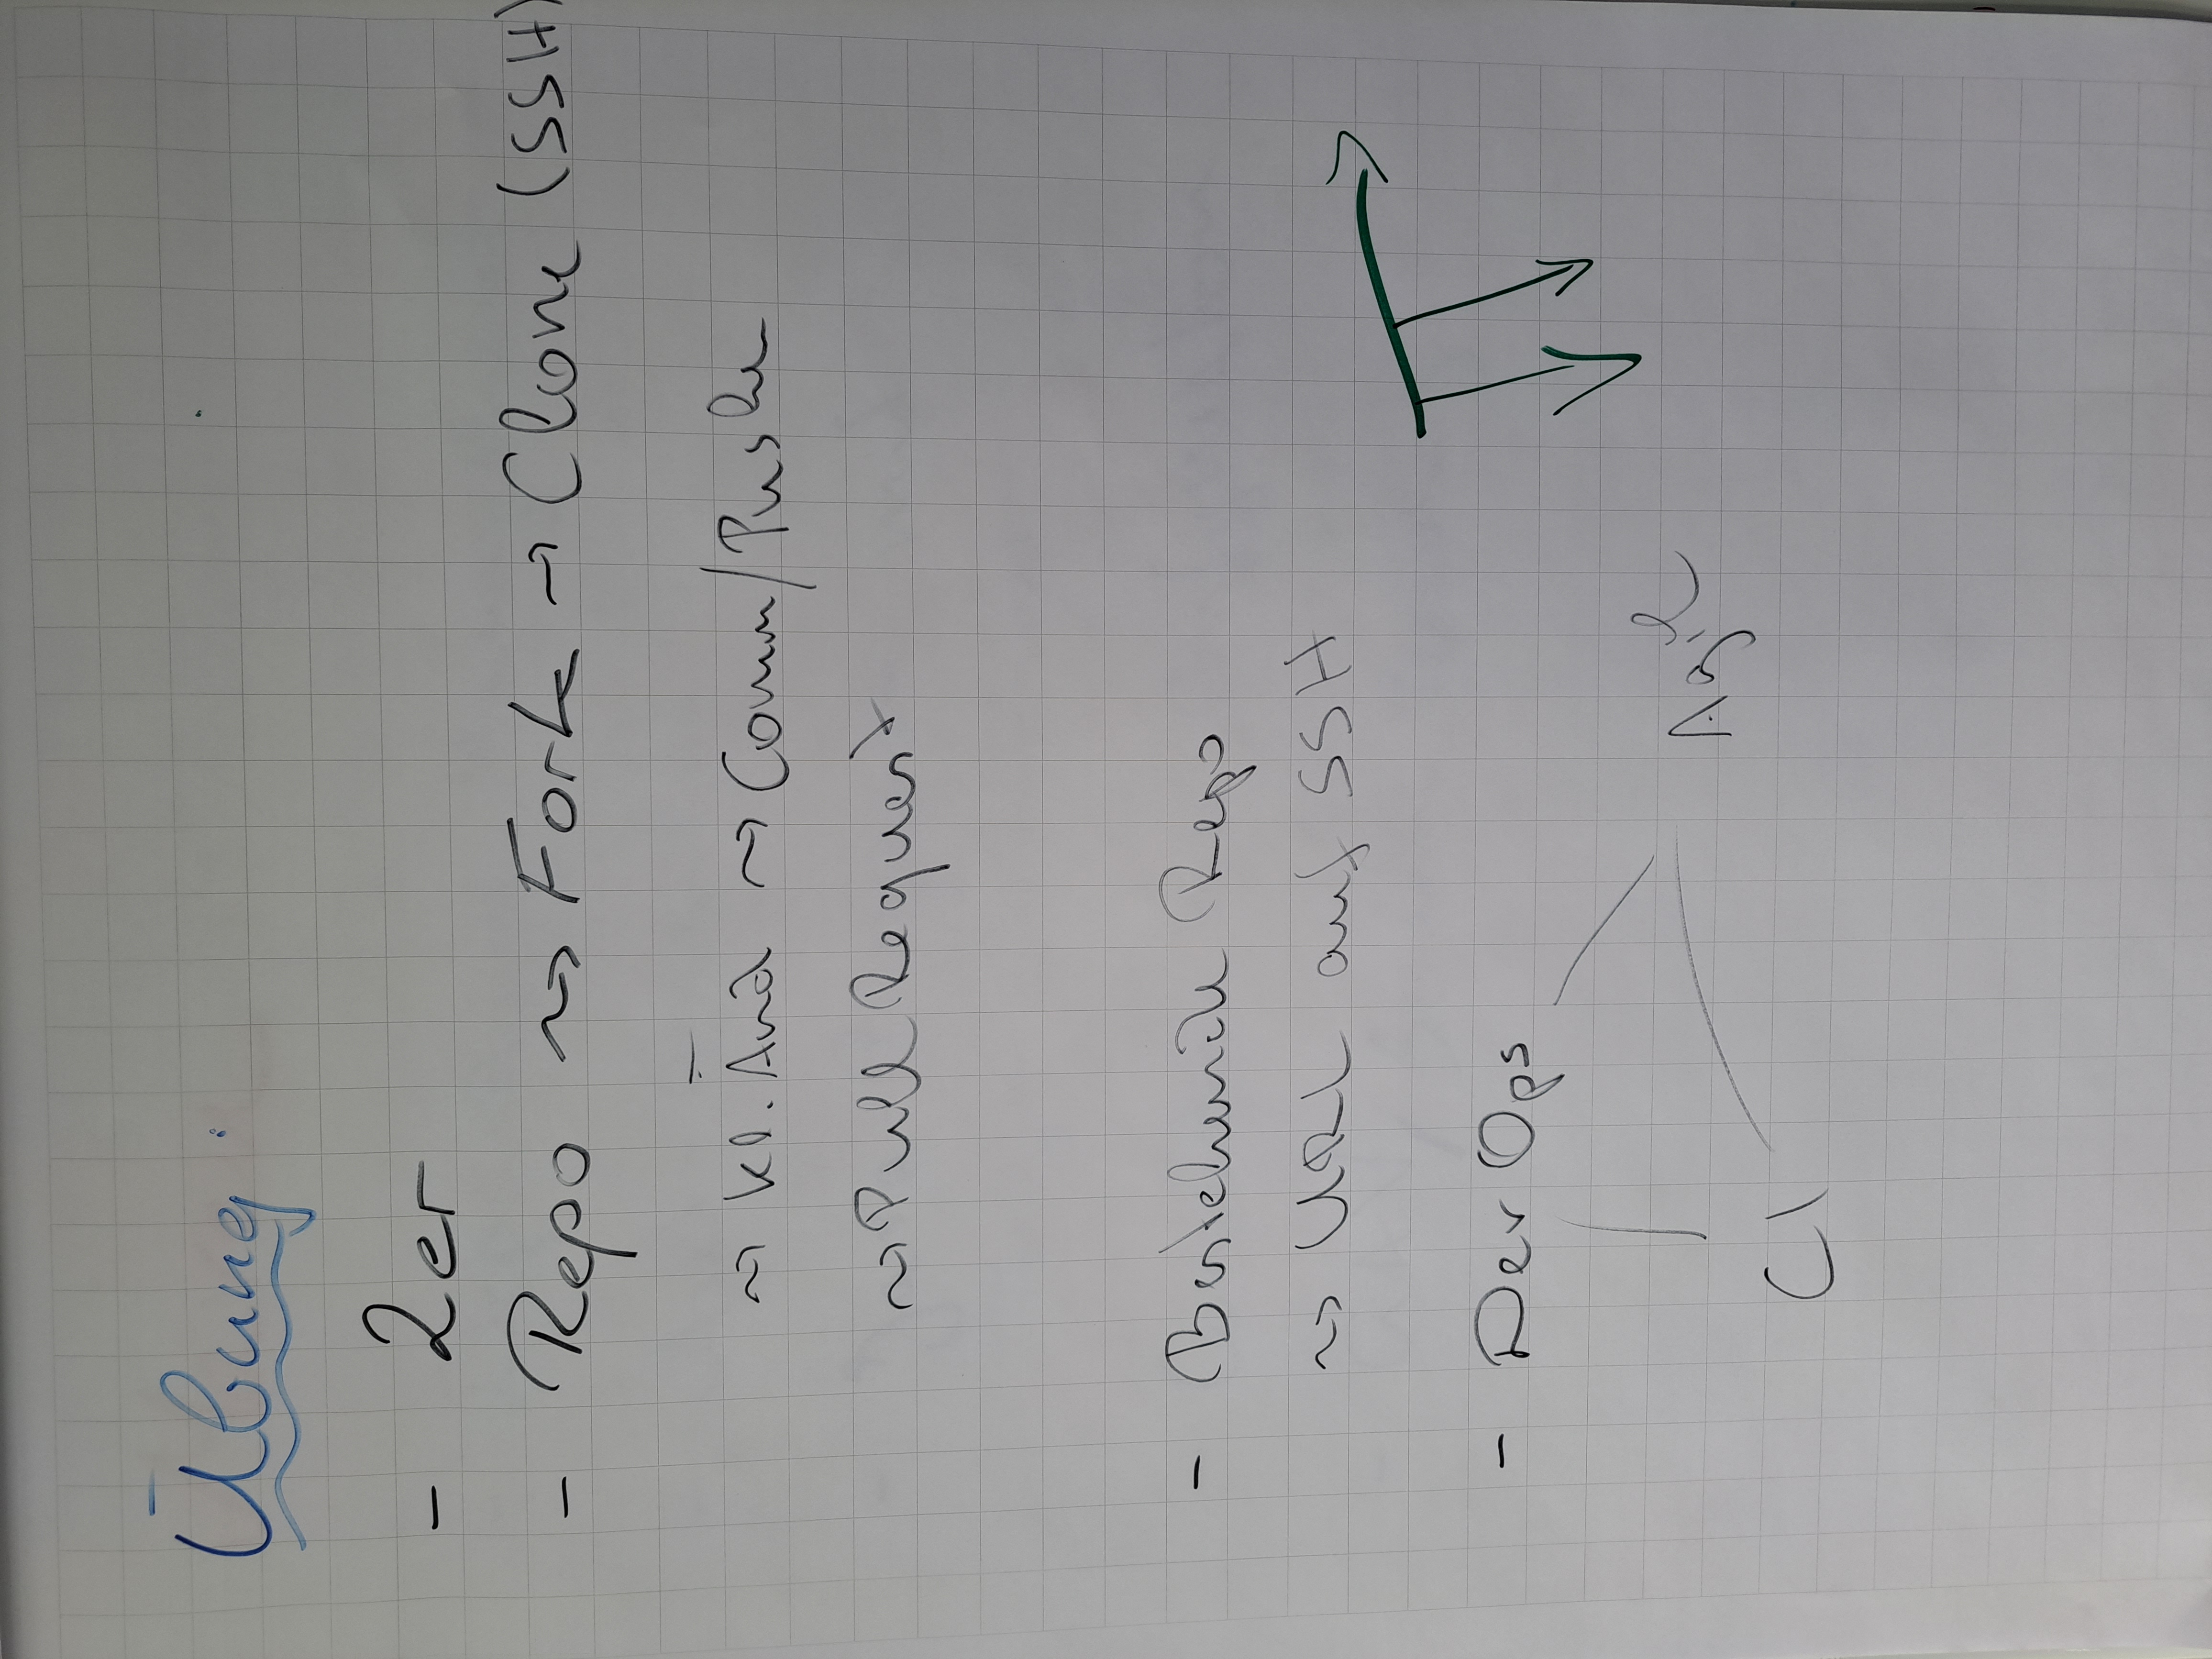 Übung:
- 2er
- Repo ⤳ Fork → Clone (SSH)
⤳ kl. Änd ⤳ Comm/Pushen
⤳ Pull Request
- Bestehende Repo
⤳ URL auf SSH
- DevOps
Agil
CI